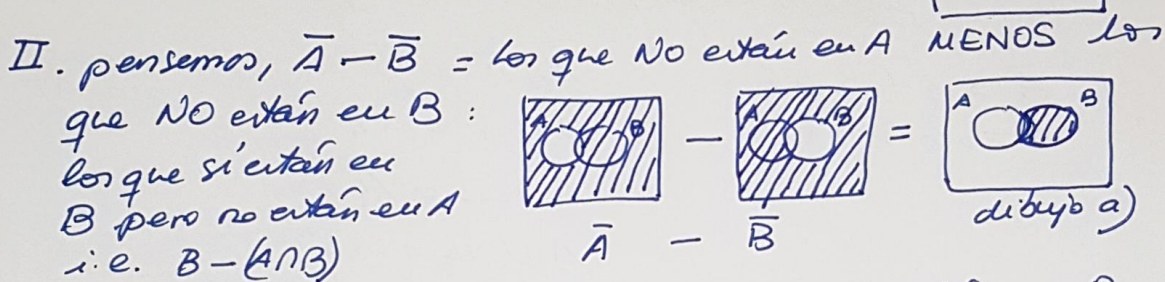 II. pensemos, A̅ − B̅ = Los que NO están en A MENOS los
que NO están en B :
los que sí están en
B pero no están en A
i.e. B − (A∩B)
A B − A B = A B
A̅ − B̅
dibujo a)